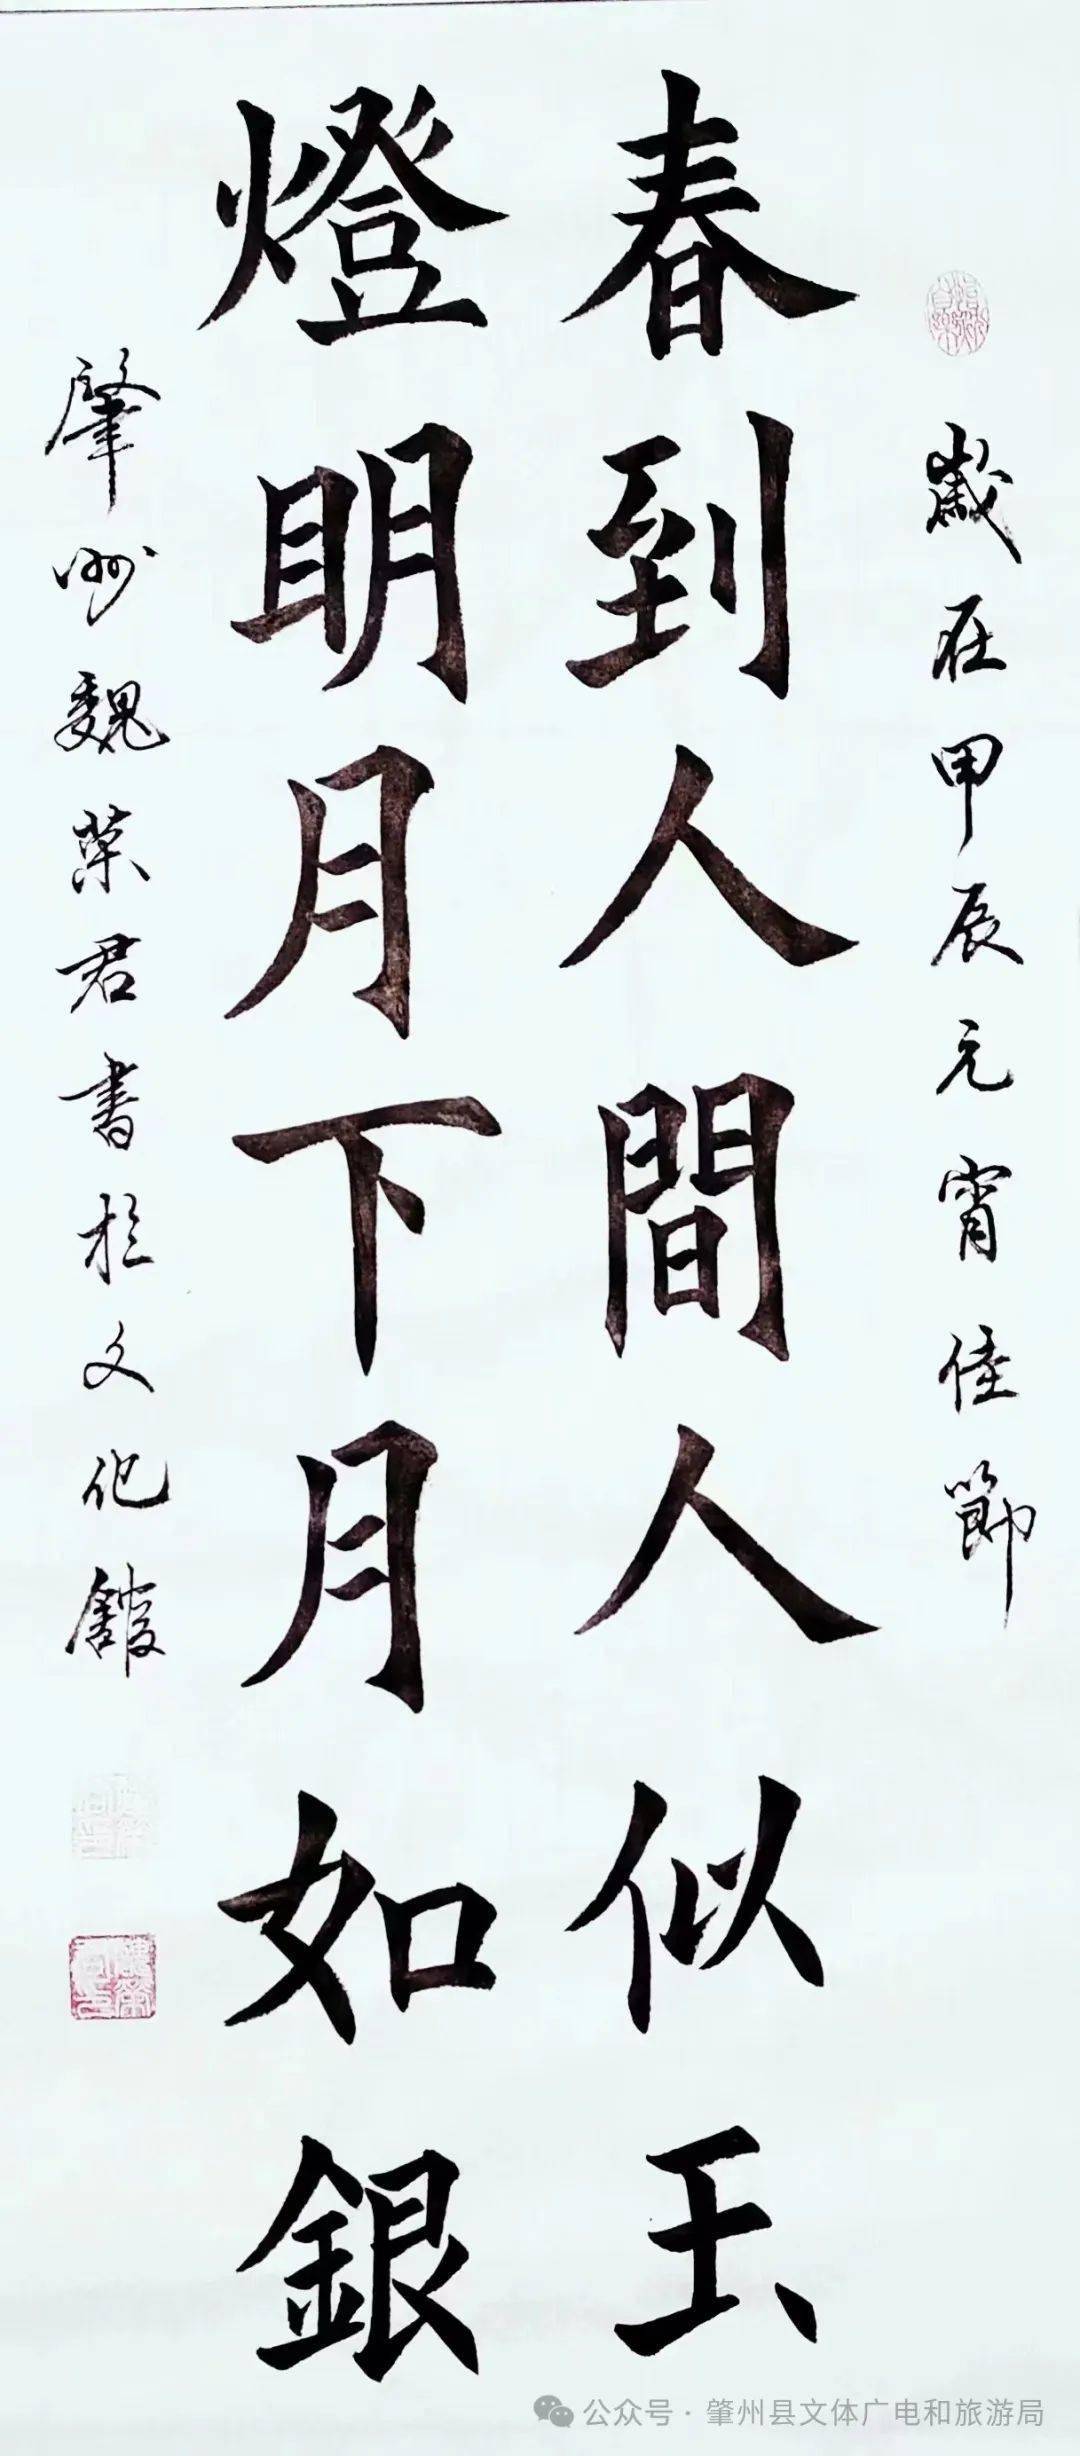 歲在甲辰元宵佳節
春到人間人似玉
燈明月下月如銀
肇州魏榮君書於文化館
公众号·肇州县文体广电和旅游局